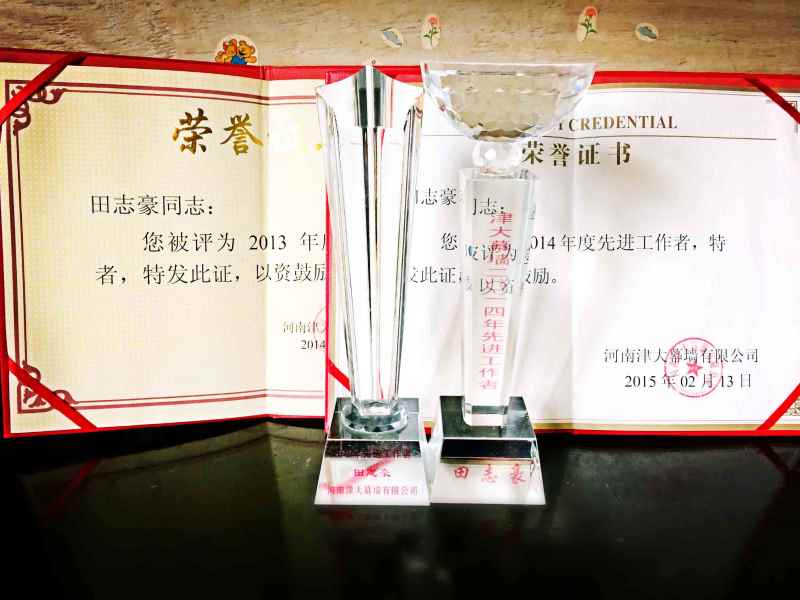 荣誉
田志豪同志：
您被评为 2013 年
者，特发此证，以资鼓励
河南津大
2014
CREDENTIAL
荣誉证书
志豪
同志：
您
评为
2014 年度先进工作者，特
发此证
以资
鼓励。
河南津大幕墙有限公司
2015 年 02 月 13 日
津大幕墙二〇一四年先进工作者
田志豪
工作者
田志豪
河南津大幕墙有限公司